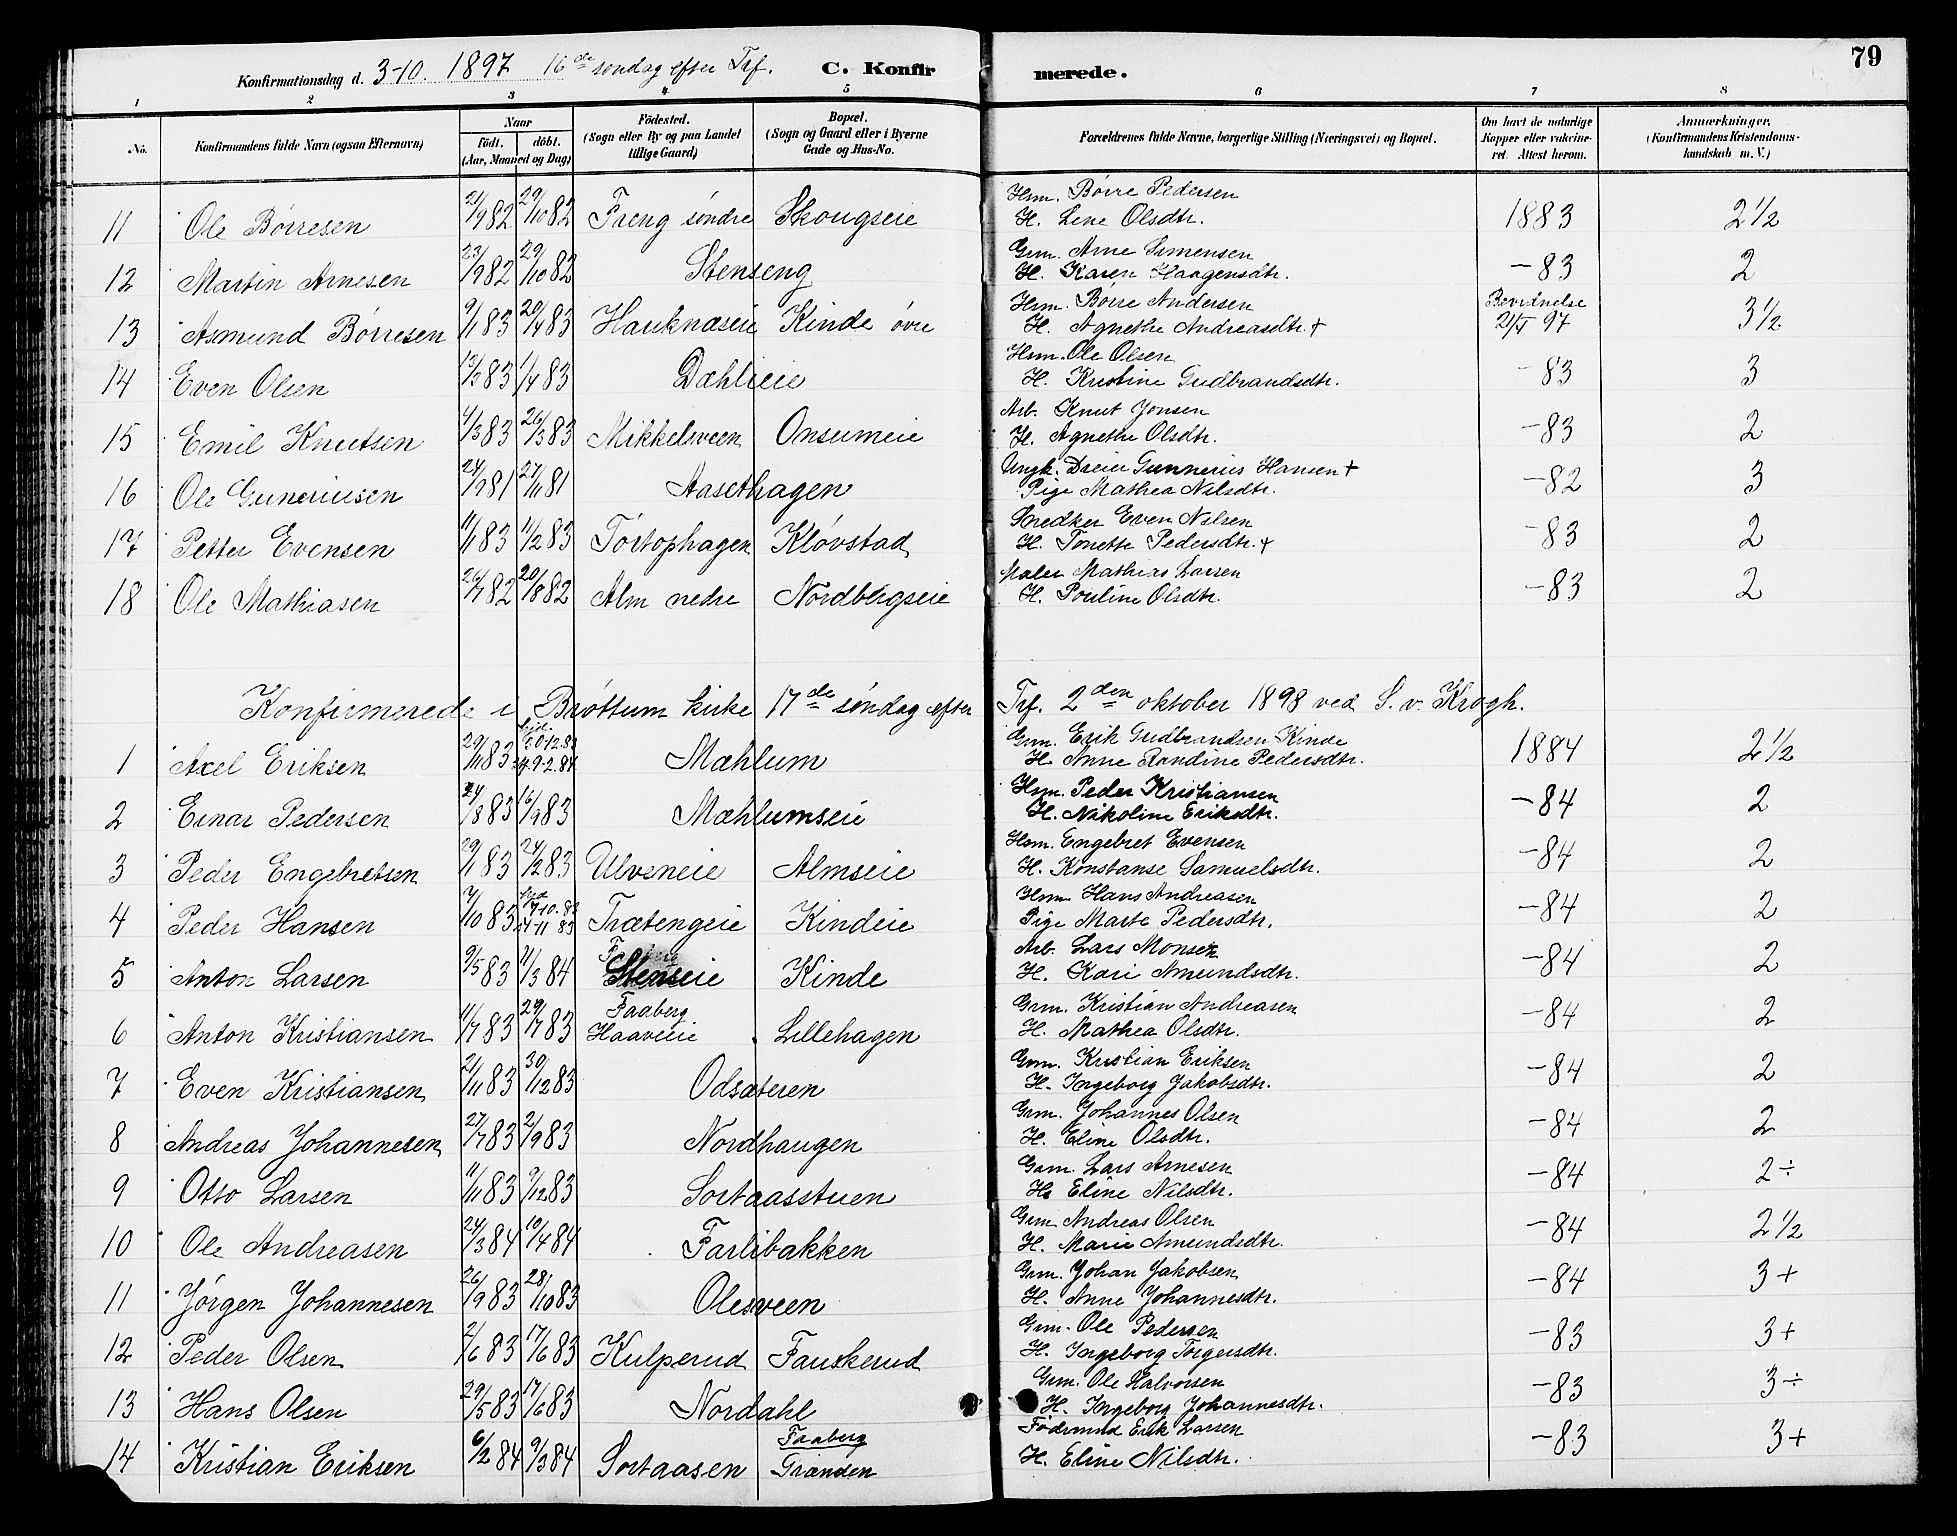 79
Konfirmationsdag d. 3-10. 1897 16de søndag efter Trf. C. Konfir merede.
1 2 3 4 5 6 7 8
No. Konfirmandens fulde Navn (ogsaa Efternavn) Naar født. døbt. (Aar, Maaned og Dag) Fødested. (Sogn eller By og paa Landet tillige Gaard) Bopæl. (Sogn og Gaard eller i Byerne Gade og Hus-No. Forældrenes fulde Navne, borgerlige Stilling (Næringsvei) og Bopæl. Om havt de naturlige Kopper eller vakcineret. Attest herom. Anmærkninger, (Konfirmandens Kristendomskundskab m. V.)
11 Ole Børresen 21/9 82 29/10 82 Freng søndre Skougseie Hsm. Børre Pedersen H. Lene Olsdtr. 1883 2 1/2
12 Martin Arnesen 23/9 82 29/10 82 Stenseng Grm. Arne Simensen H. Karen Haagensdtr. -83 2
13 Asmund Børresen 9/1 83 29/4 83 Hauknæseie Kinde øvre Hsm. Børre Andersen H. Agnethe Andreasdtr. + Bevidnelse 2/5 97 3 1/2
14 Even Olsen 83 1/4 83 Dæhlieie Hsm. Ole Olsen H. Kristine Gudbrandsdtr. -83 3
15 Emil Knutsen 4/3 83 26/3 83 Mikkelsveen Onsumeie Arb. Knut Jonsen H. Agnethe Olsdtr. -83 2
16 Ole Guneriusen 24/9 81 27/11 81 Aasethagen Ungk. Dreier Gunnerius Hansen + Pige Mathea Nilsdtr. -82 3
17 Petter Evensen 11/1 83 11/2 83 Tørtophagen Kløvstad Snedker Even Nilsen H. Tonette Pedersdtr. + -83 2
18 Ole Mathiasen 26/7 82 20/8 82 Alm nedre Nordbergseie Maler Mathias Larsen H. Pouline Olsdtr. -83 2
Konfirmerede i Brøttum kirke 17de søndag efter Trf. 2den oktober 1898 ved S. v. Krogh.
1 Axel Eriksen 29/11 83 9.2.84 Mæhlum Grm. Erik Gudbrandsen Kinde H. Anne Randine Pedersdtr. 1884 2 1/2
2 Einar Pedersen 24/8 83 16/9 83 Mæhlumseie Hsm. Peder Kristiansen H. Nikoline Eriksdtr. -84 2
3 Peder Engebretsen 29/11 83 24/12 83 Ulveneie Almseie Hsm. Engebret Evensen H. Konstanse Samuelsdtr. -84 2
4 Peder Hansen 7/10 83 Trætengeie Kindeie Hsm. Hans Andreasen Pige Marte Pedersdtr. -84 2
5 Anton Larsen 9/5 83 84 Stenseie Kinde Arb. Lars Monsen H. Kari Amundsdtr. -84 2
6 Anton Kristiansen 11/7 83 29/7 83 Faaberg Haaveeie Lillehagen Grm. Kristian Andreasen H. Mathea Olsdtr. -84 2
7 Even Kristiansen 21/11 83 30/12 83 Odsæteren Grm. Kristian Eriksen H. Ingeborg Jakobsdtr. -84 2
8 Andreas Johannesen 27/7 83 2/9 83 Nordhaugen Grm. Johannes Olsen H. Eline Olsdtr. -84 2
9 Otto Larsen 11/11 83 9/12 83 Sortaasstuen Grm. Lars Arnesen H. Eline Nilsdtr. -84 2÷
10 Ole Andreasen 24/3 84 84 Farlibakken Grm. Andreas Olsen H. Marie Amundsdtr. -84 2 1/2
11 Jørgen Johannesen 26/9 83 28/10 83 Olesveen Grm. Johan Jakobsen H. Anne Johannesdtr. -84 3+
12 Peder Olsen 2/6 83 17/6 83 Kulperud Fauskerud Grm. Ole Pedersen H. Ingeborg Torgersdtr. -83 3+
13 Hans Olsen 29/5 83 17/6 83 Nordahl Grm. Ole Halvorsen H. Ingeborg Johannesdtr. -83 3÷
14 Kristian Eriksen 6/2 84 9/3 84 Sortaasen Faaberg Granden Føderaad Erik Larsen H. Eline Nilsdtr. -83 3+